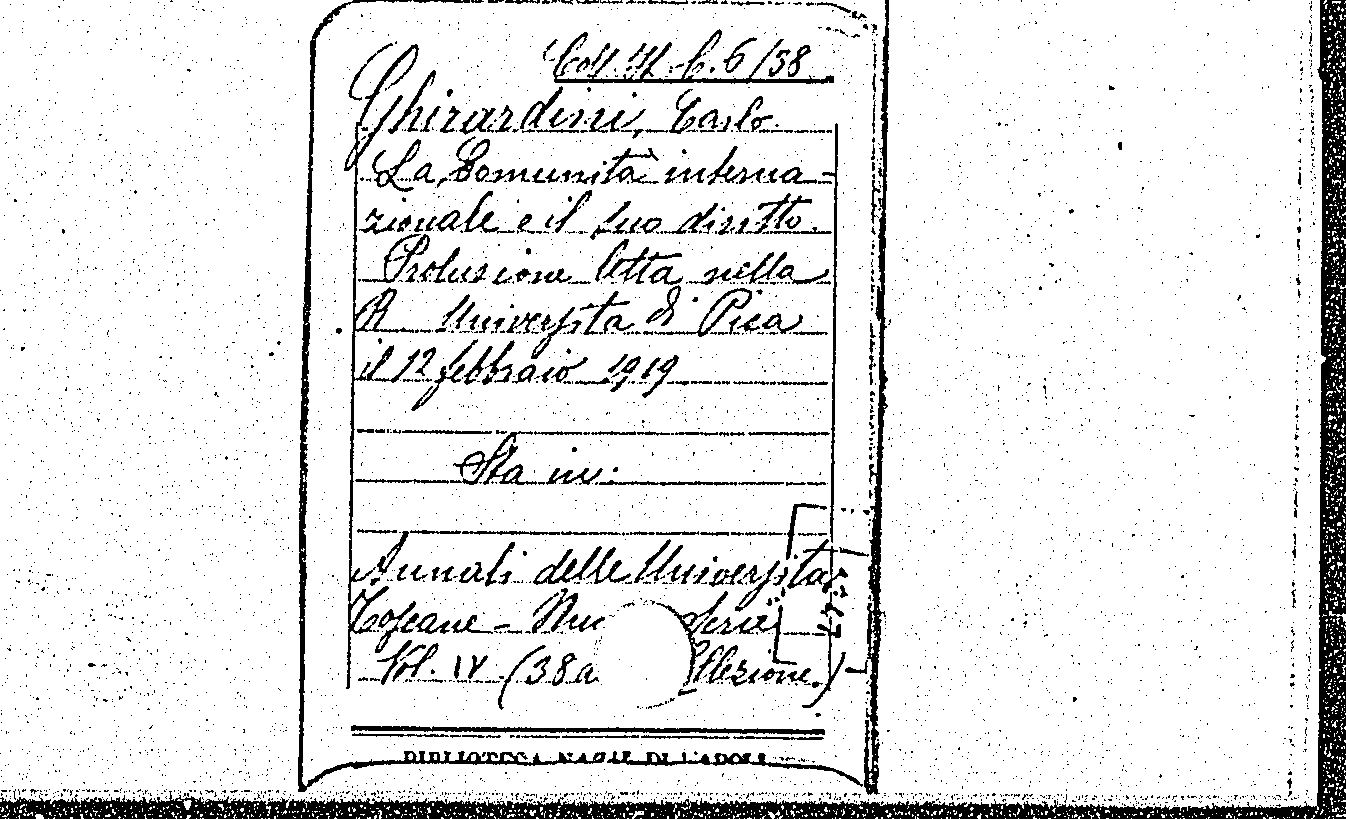 Coll. It. C. 6/38
Ghirardini, Carlo.
La Comunità interna-
zionale e il suo diritto.
Prolusione letta nella
R Università di Pisa
il 12 febbraio 1919
Sta in:
Annali delle Università
Toscane - Nu Serie
Vol. IV (38 a llezione.)
BIBLIOTECA NAZ.LE DI NAPOLI